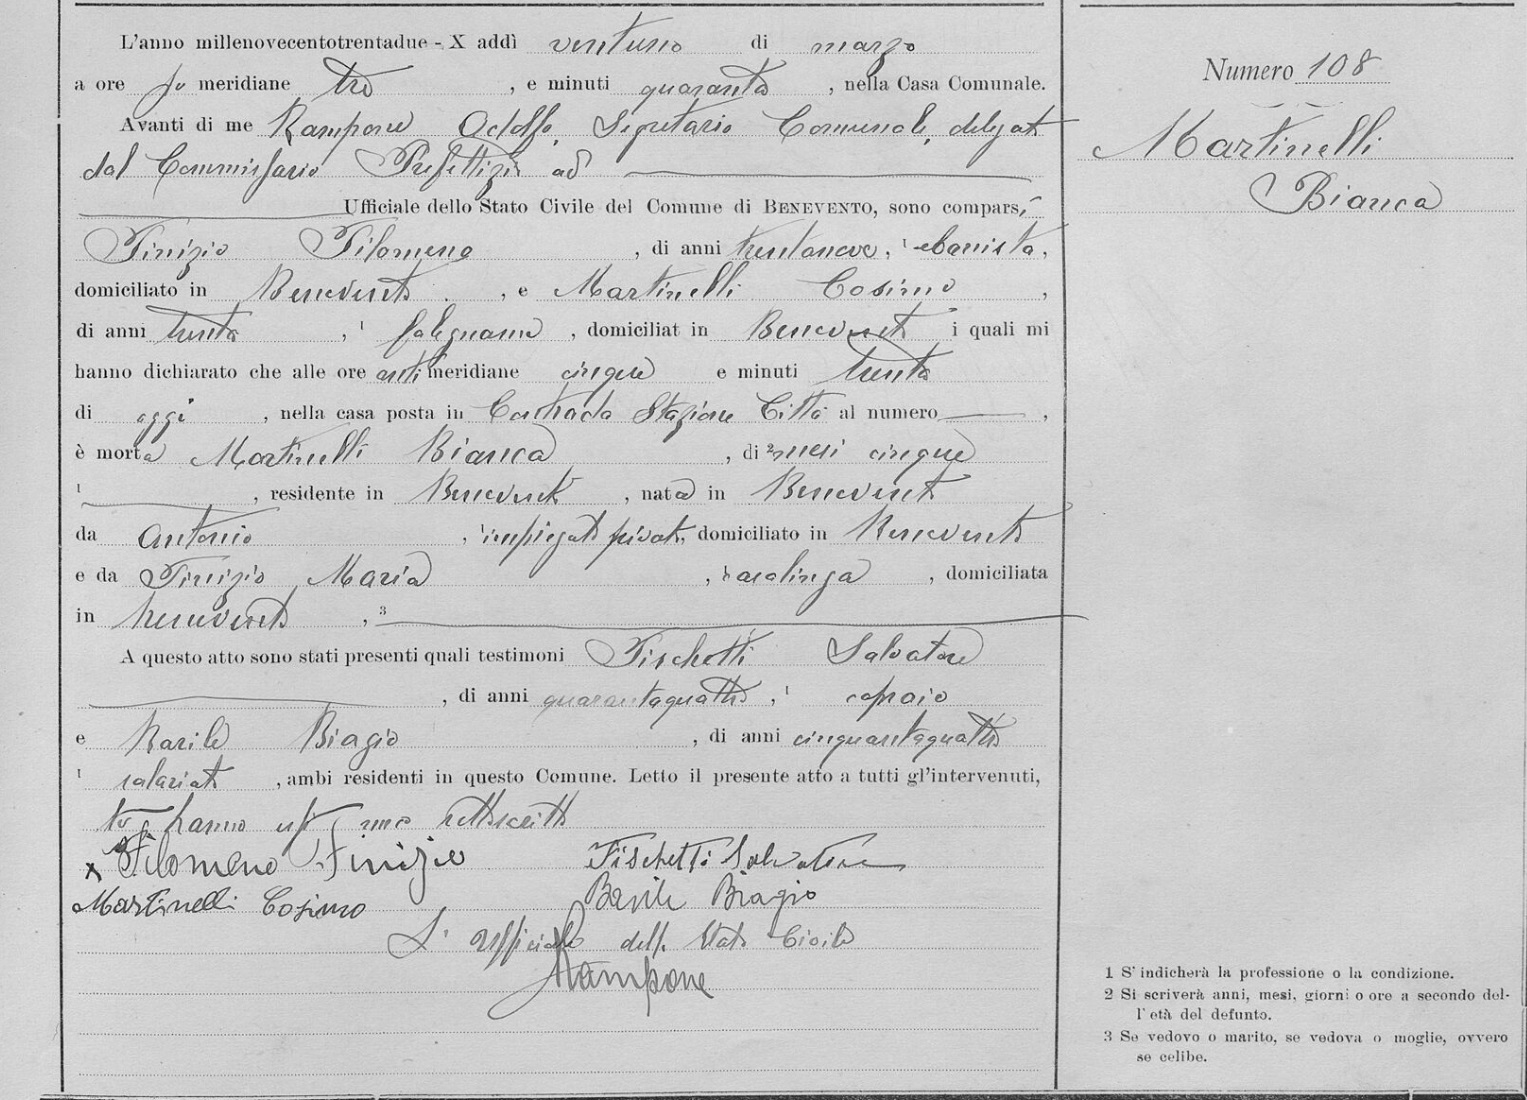 L'anno millenovecentotrentadue - X addì ventuno di marzo
a ore po meridiane tre, e minuti quaranta, nella Casa Comunale.
Avanti di me Rampone Odolfo, Segretario Comunale, delegato
dal Commissario Prefettizio ad
Ufficiale dello Stato Civile del Comune di BENEVENTO, sono comparsi
Finizio Filomeno, di anni trentanove, ¹ ebanista,
domiciliato in Benevento, e Martinelli Cosimo,
di anni trenta, ¹ falegname, domiciliat in Benevento i quali mi
hanno dichiarato che alle ore antimeridiane cinque e minuti trenta
di oggi, nella casa posta in Contrada Stazione Città al numero —,
è morta Martinelli Bianca, di ² mesi cinque
¹ , residente in Benevento, nata in Benevento
da Antonio, ¹ impiegato privato, domiciliato in Benevento
e da Finizio Maria, ¹ casalinga, domiciliata
in Benevento, ³
A questo atto sono stati presenti quali testimoni Fischetti Salvatore
, di anni quarantaquattro, ¹ copraio
e Barile Biagio, di anni cinquantaquattro
¹ salariato, ambi residenti in questo Comune. Letto il presente atto a tutti gl'intervenuti,
hanno me sottoscritto
x Filomeno Finizio Fischetti Salvatore
Martinelli Cosimo Barile Biagio
L'Ufficiale dello Stato Civile
Rampone
Numero 108
Martinelli
Bianca
1 S'indicherà la professione o la condizione.
2 Si scriverà anni, mesi, giorni o ore a secondo del-
l'età del defunto.
3 Se vedovo o marito, se vedova o moglie, ovvero
se celibe.